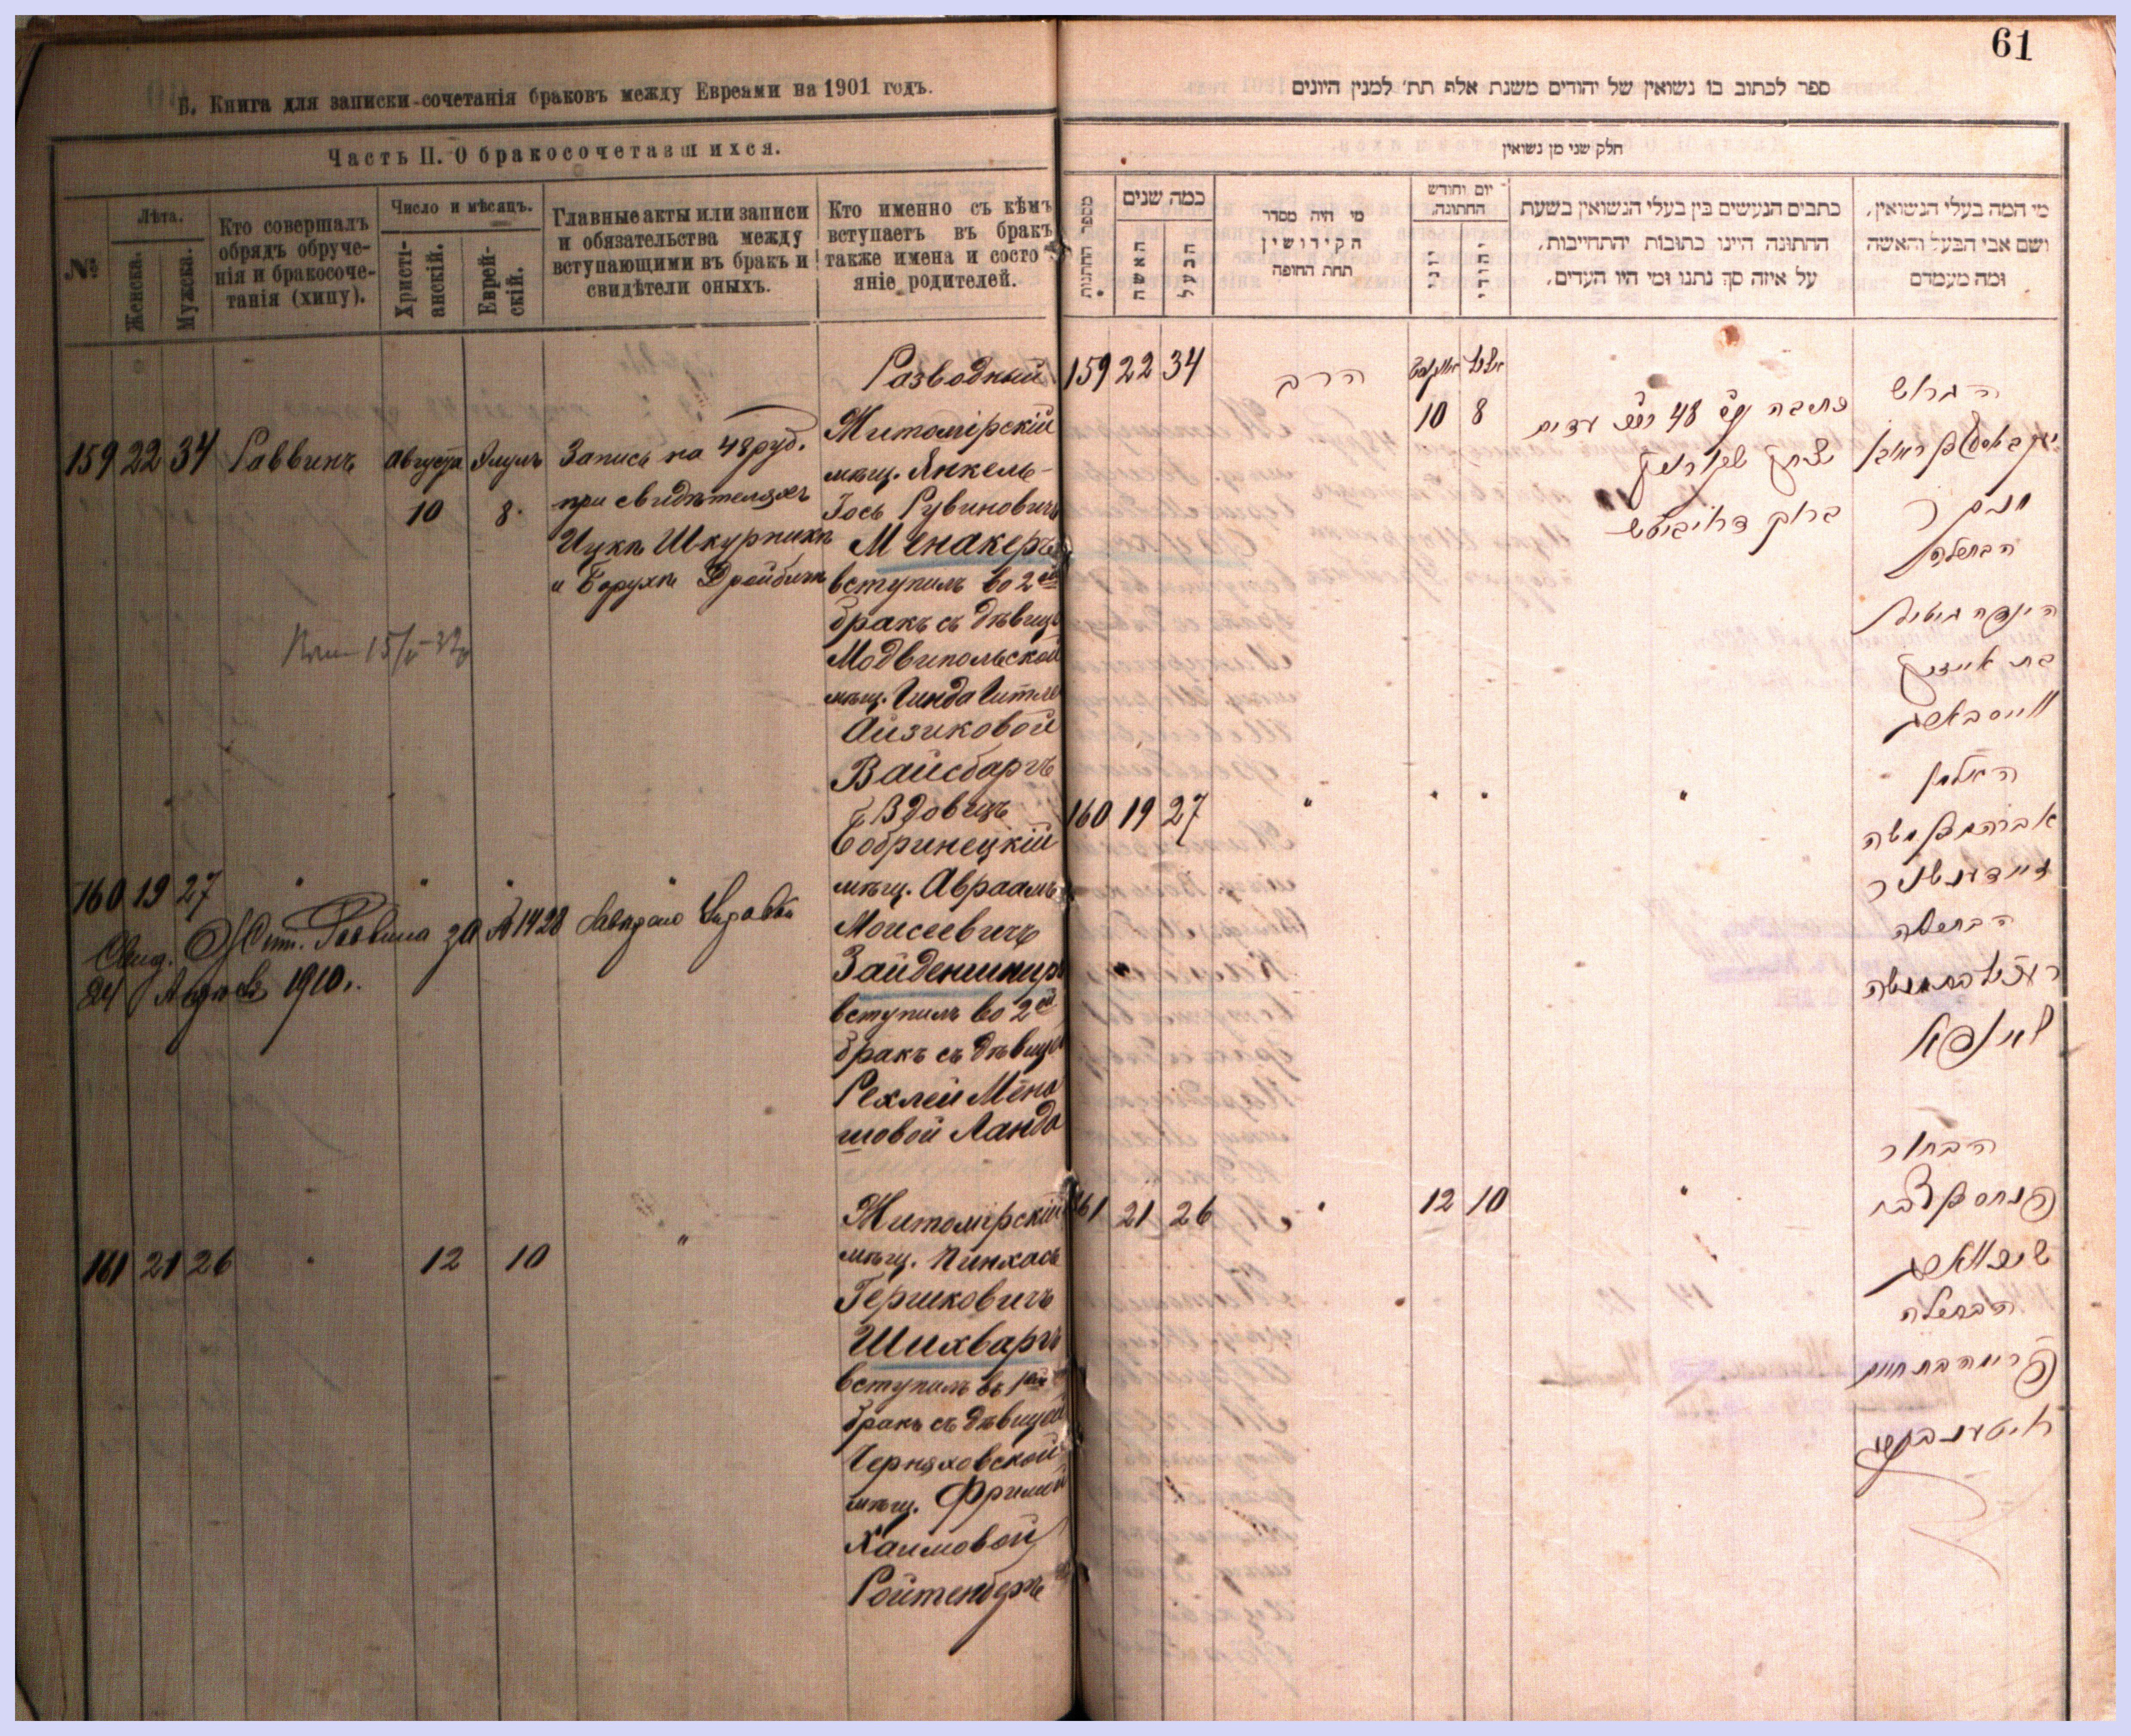 61
Б. Книга для записки сочетанія браковъ между Евреями на 1901 годъ.
Часть II. О бракосочетавшихся.
№
Лѣта.
Женска.
Мужска.
Кто совершалъ
обрядъ обруче-
нія и бракосоче-
танія (хипу).
Число и мѣсяцъ.
Христі-
анскій.
Еврей-
скій.
Главные акты или записи
и обязательства между
вступающими въ бракъ и
свидѣтели оныхъ.
Кто именно съ кѣмъ
вступаетъ въ бракъ
также имена и состо
яніе родителей.
159 22 34 Раввинъ Августа Элулъ
10 8.
Запись на 48 руб.
при свидѣтеляхъ
Ицкъ Шкурникъ
и Борухъ Дройбичъ
Разводный
Житомірскій
мѣщ. Янкель-
Іось Рувиновичъ
Менакеръ
вступилъ во 2й
бракъ съ дѣвиц
мѣщ. Гинда Гитлей
Айзиковой
Вайсбаргъ
160 19 27 " " " "
Вдовецъ
Бобринецкій
мѣщ. Авраамъ
Моисеевичъ
Зайденшниръ
вступилъ во 2ой
бракъ съ дѣвицей
Рехлей Мена
шовой Ланда
Раввина за № 1428
24 1910 г.
161 21 26 " 12 10 "
Житомірскій
мѣщ. Пинхась
Гершковичъ
Шихваргъ
вступилъ въ 1ый
бракъ съ дѣвицей
Черняховской
мѣщ. Фримой
Хаимовой
Ройтенбергъ
ספר לכתוב בו נשואין של יהודים משנת אלף תת׳ למנין היונים
חלק שני מן נשואין
מספר החתונות
כמה שנים
האשה
הבעל
מי היה מסדר
הקידושין
תחת החופה
יום וחודש
החתונה.
יוני
יהודי
כתבים הנעשים בין בעלי הנשואין בשעת
החתונה היינו כתובות יהתחייבות,
על איזה סך נתנו ומי היו העדים.
מי המה בעלי הנשואין,
ושם אבי הבעל והאשה
ומה מעמדם
159 22 34 הרב אווגוסט אלול
10 8
כתיבה על 48 רוכ עדים
יצחק שקורניק
ברוך דרויביטש
הגרוש
מנקר
הבתולה
הינדה גיטיל
בת אייזיק
ווייסבארג
160 19 27 " " " "
האלמן
אברהם בן משה
זיידענשניר
הבתולה
לאנדא
161 21 26 " 12 10 "
הבחור
פנחס בן צבי
שיכווארג
הבתולה
פרימה בת חיים
רויטענבערג